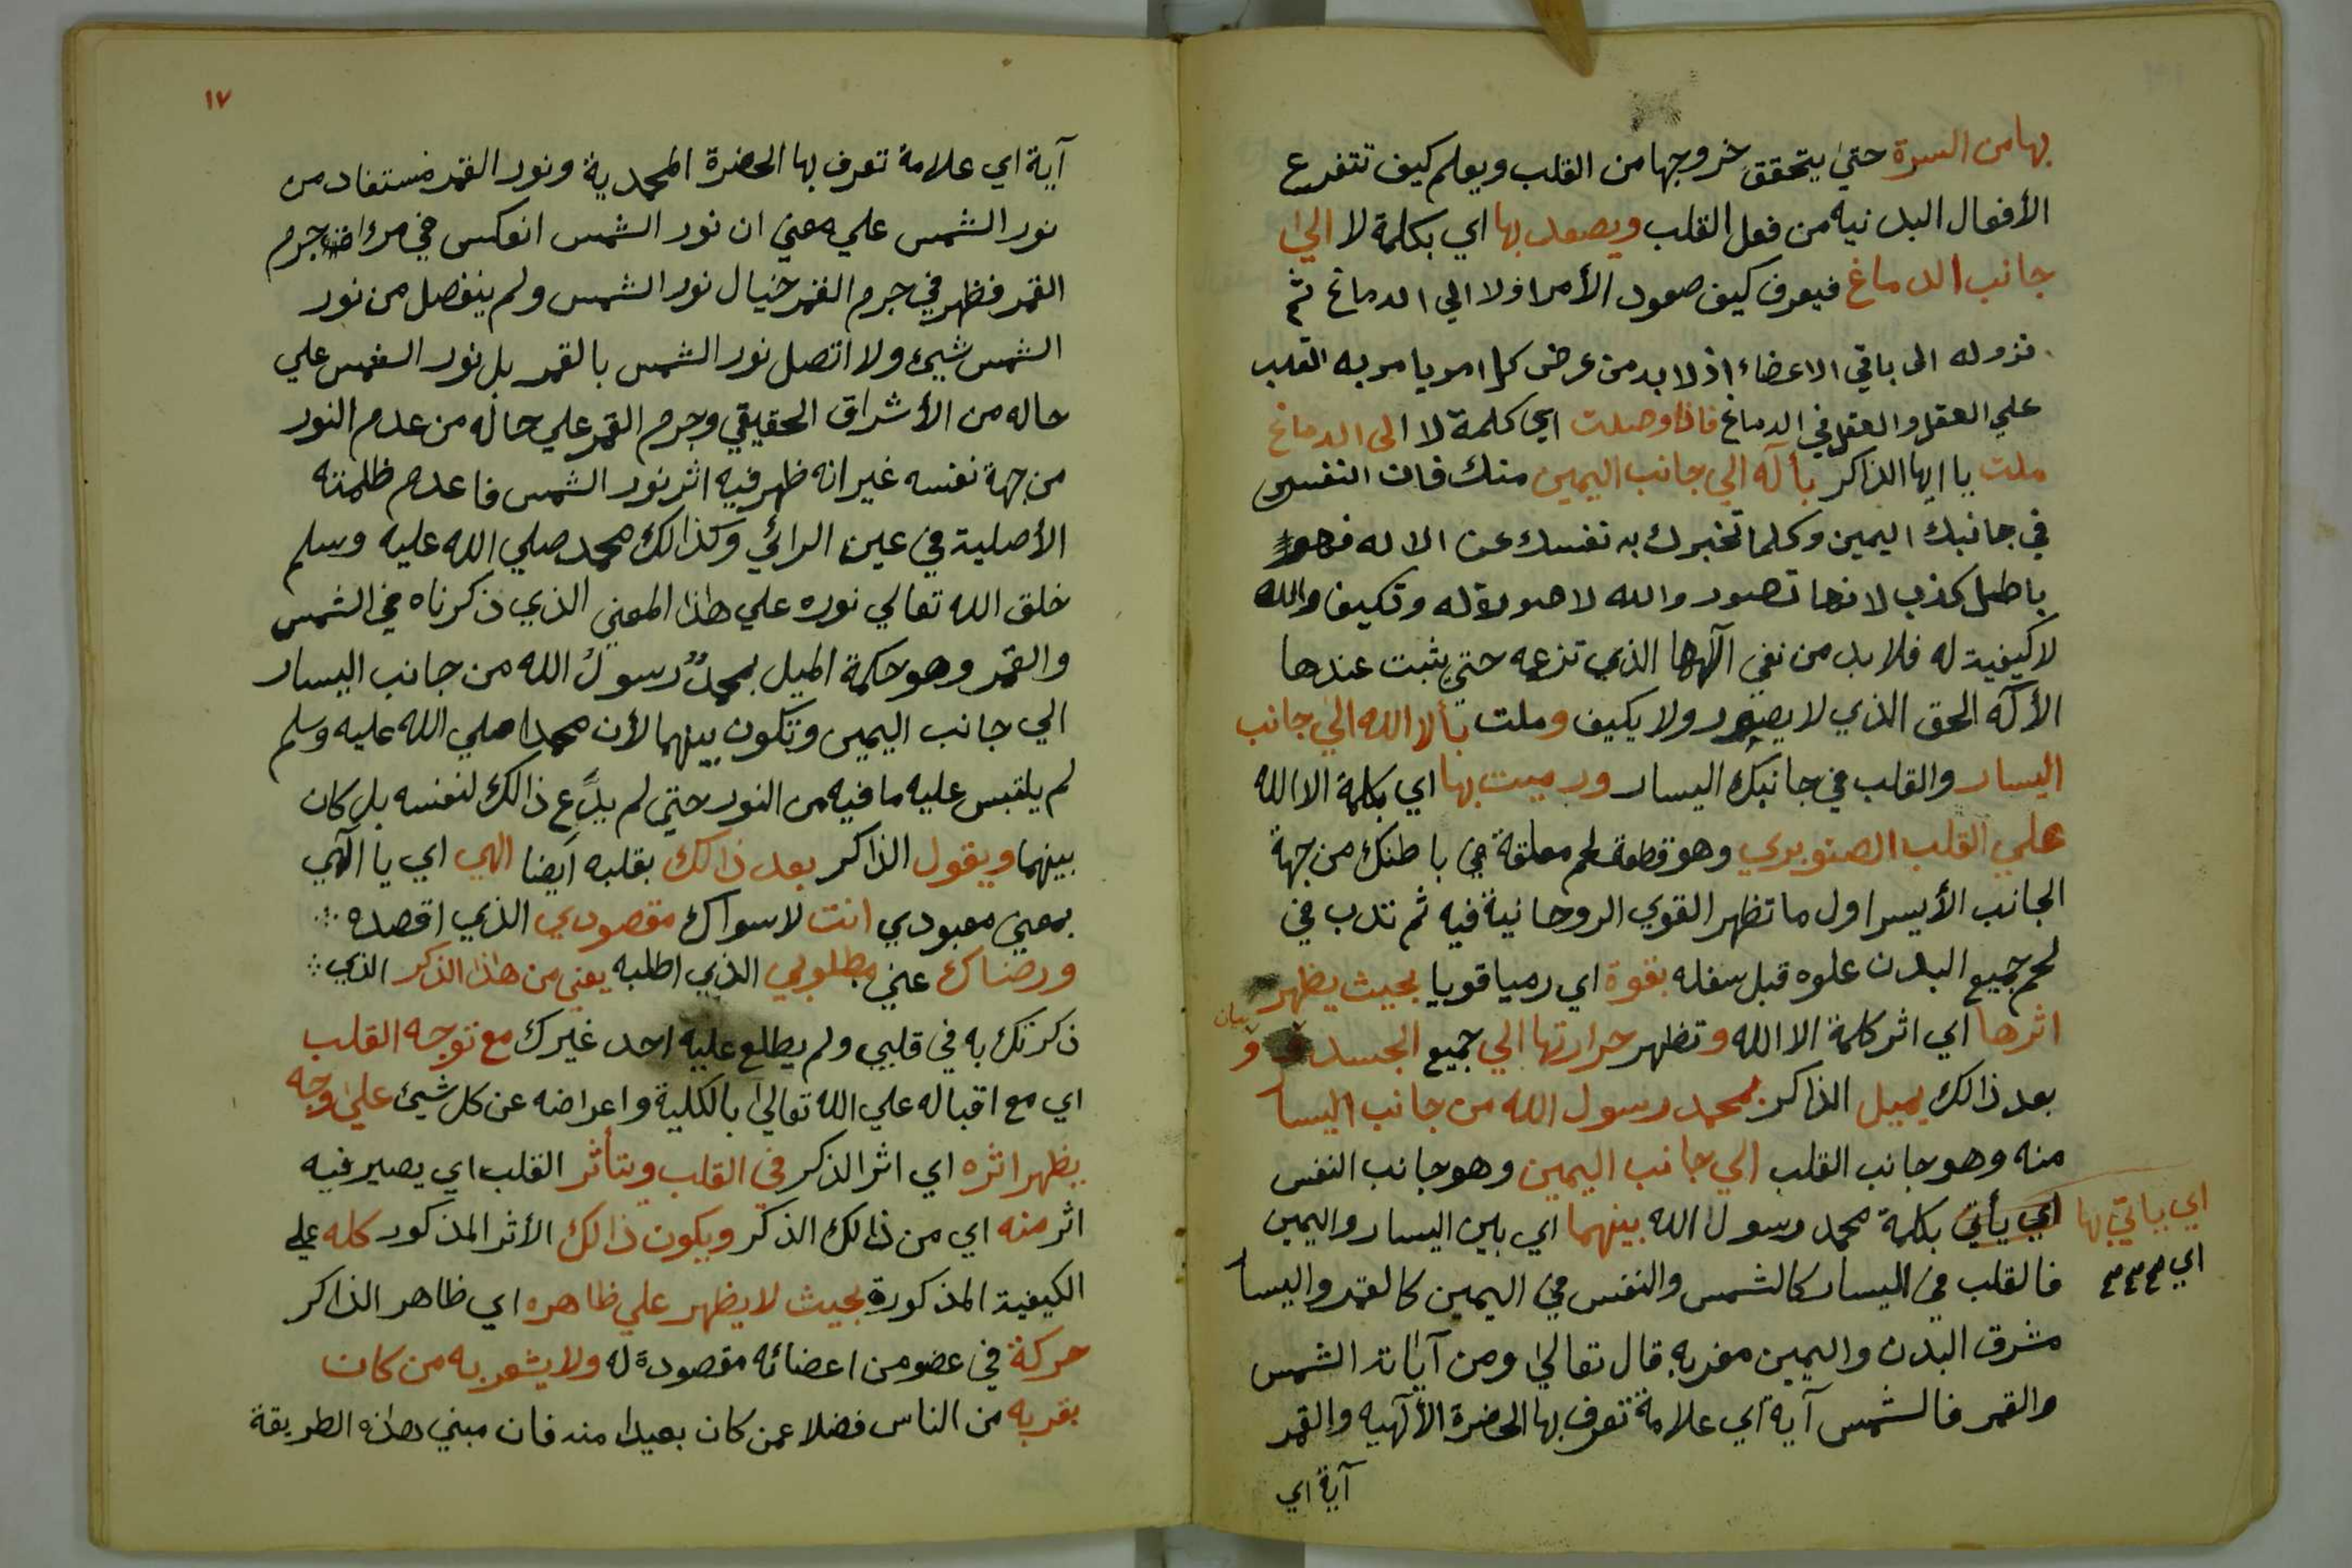 بها من السرة حتى يتحقق خروجها من القلب ويعلم كيف تتفرع
الأفعال البدنيه من فعل القلب ويصعد بها اي بكلمة لا الى
جانب الدماغ فيعرف كيف صعود الأمر اولا الي الدماغ ثم
نزوله الى باقي الاعضاء اذ لا بد من عرض كل امر يامر به القلب
علي العقل والعقل في الدماغ فاذا وصلت اي كلمة لا الى الدماغ
ملت يا ايها الذاكر بأله الي جانب اليمين منك فان النفس
في جانبك اليمين وكلما تخبرك به نفسك عن الاله فهو
باطل كذب لانها تصور والله لا صورة له وتكيف والله
لا كيفية له فلا بد من نفي آلهها الذي تزعمه حتي يثبت عندها
الأله الحق الذي لا يصور ولا يكيف وملت بألا الله الي جانب
اليسار والقلب في جانبك اليسار ورميت بها اي بكلمة الا الله
علي القلب الصنوبري وهو قطعة لحم معلقة في باطنك من جهة
الجانب الأيسر اول ما تظهر القوي الروحانية فيه ثم تدب في
لحم جميع البدن علوه قبل سفله بقوة اي رميا قويا بحيث يظهر
اثرها اي اثر كلمة الا الله وتظهر حرارتها الي جميع الجسد و
بيان
بعد ذالك يميل الذاكر بمحمد رسول الله من جانب اليسا
منه وهو جانب القلب الي جانب اليمين وهو جانب النفس
اي يأتي بكلمة محمد رسول الله بينهما اي بين اليسار واليمين
اي ياتي بها
اي
فالقلب في اليسار كالشمس والنفس في اليمين كالقمر واليسا
مشرق البدن واليمين مغربه قال تعالى ومن آياته الشمس
والقمر فالشمس آية اي علامة تعرف بها الحضرة الألهيه والقمر
آية اي
١٧
آية اي علامة تعرف بها الحضرة المحمدية ونور القمر مستفاد من
نور الشمس علي معني ان نور الشمس انعكس في مراة جرم
القمر فظهر في جرم القمر خيال نور الشمس ولم ينفصل من نور
الشمس شيئ ولا اتصل نور الشمس بالقمر بل نور الشمس علي
حاله من الأشراق الحقيقي وجرم القمر علي حاله من عدم النور
من جهة نفسه غير انه ظهر فيه اثر نور الشمس فاعدم ظلمته
الأصلية في عين الرائي وكذالك محمد صلي الله عليه وسلم
خلق الله تعالي نوره علي هذا المعني الذي ذكرناه في الشمس
والقمر وهو حكمة الميل بمحمد رسول الله من جانب اليسار
الي جانب اليمين وتكون بينهما لأن محمدا صلي الله عليه وسلم
لم يلتبس عليه ما فيه من النور حتي لم يدع ذالك لنفسه بل كان
بينهما ويقول الذاكر بعد ذالك بقلبه ايضا الهي اي يا آلهي
بمعني معبودي انت لا سواك مقصودي الذي اقصده
ورضاك عني مطلوبي الذي اطلبه يعني من هذا الذكر الذي
ذكرتك به في قلبي ولم يطلع عليه احد غيرك مع توجه القلب
اي مع اقباله علي الله تعالى بالكلية واعراضه عن كل شيئ على وجه
يظهر اثره اي اثر الذكر في القلب ويتأثر القلب اي يصير فيه
اثر منه اي من ذالك الذكر ويكون ذالك الأثر المذكور كله علي
الكيفية المذكورة بحيث لا يظهر علي ظاهره اي ظاهر الذاكر
حركة في عضو من اعضائه مقصودة له ولا يشعر به من كان
بقربه من الناس فضلا عمن كان بعيدا منه فان مبني هذه الطريقة